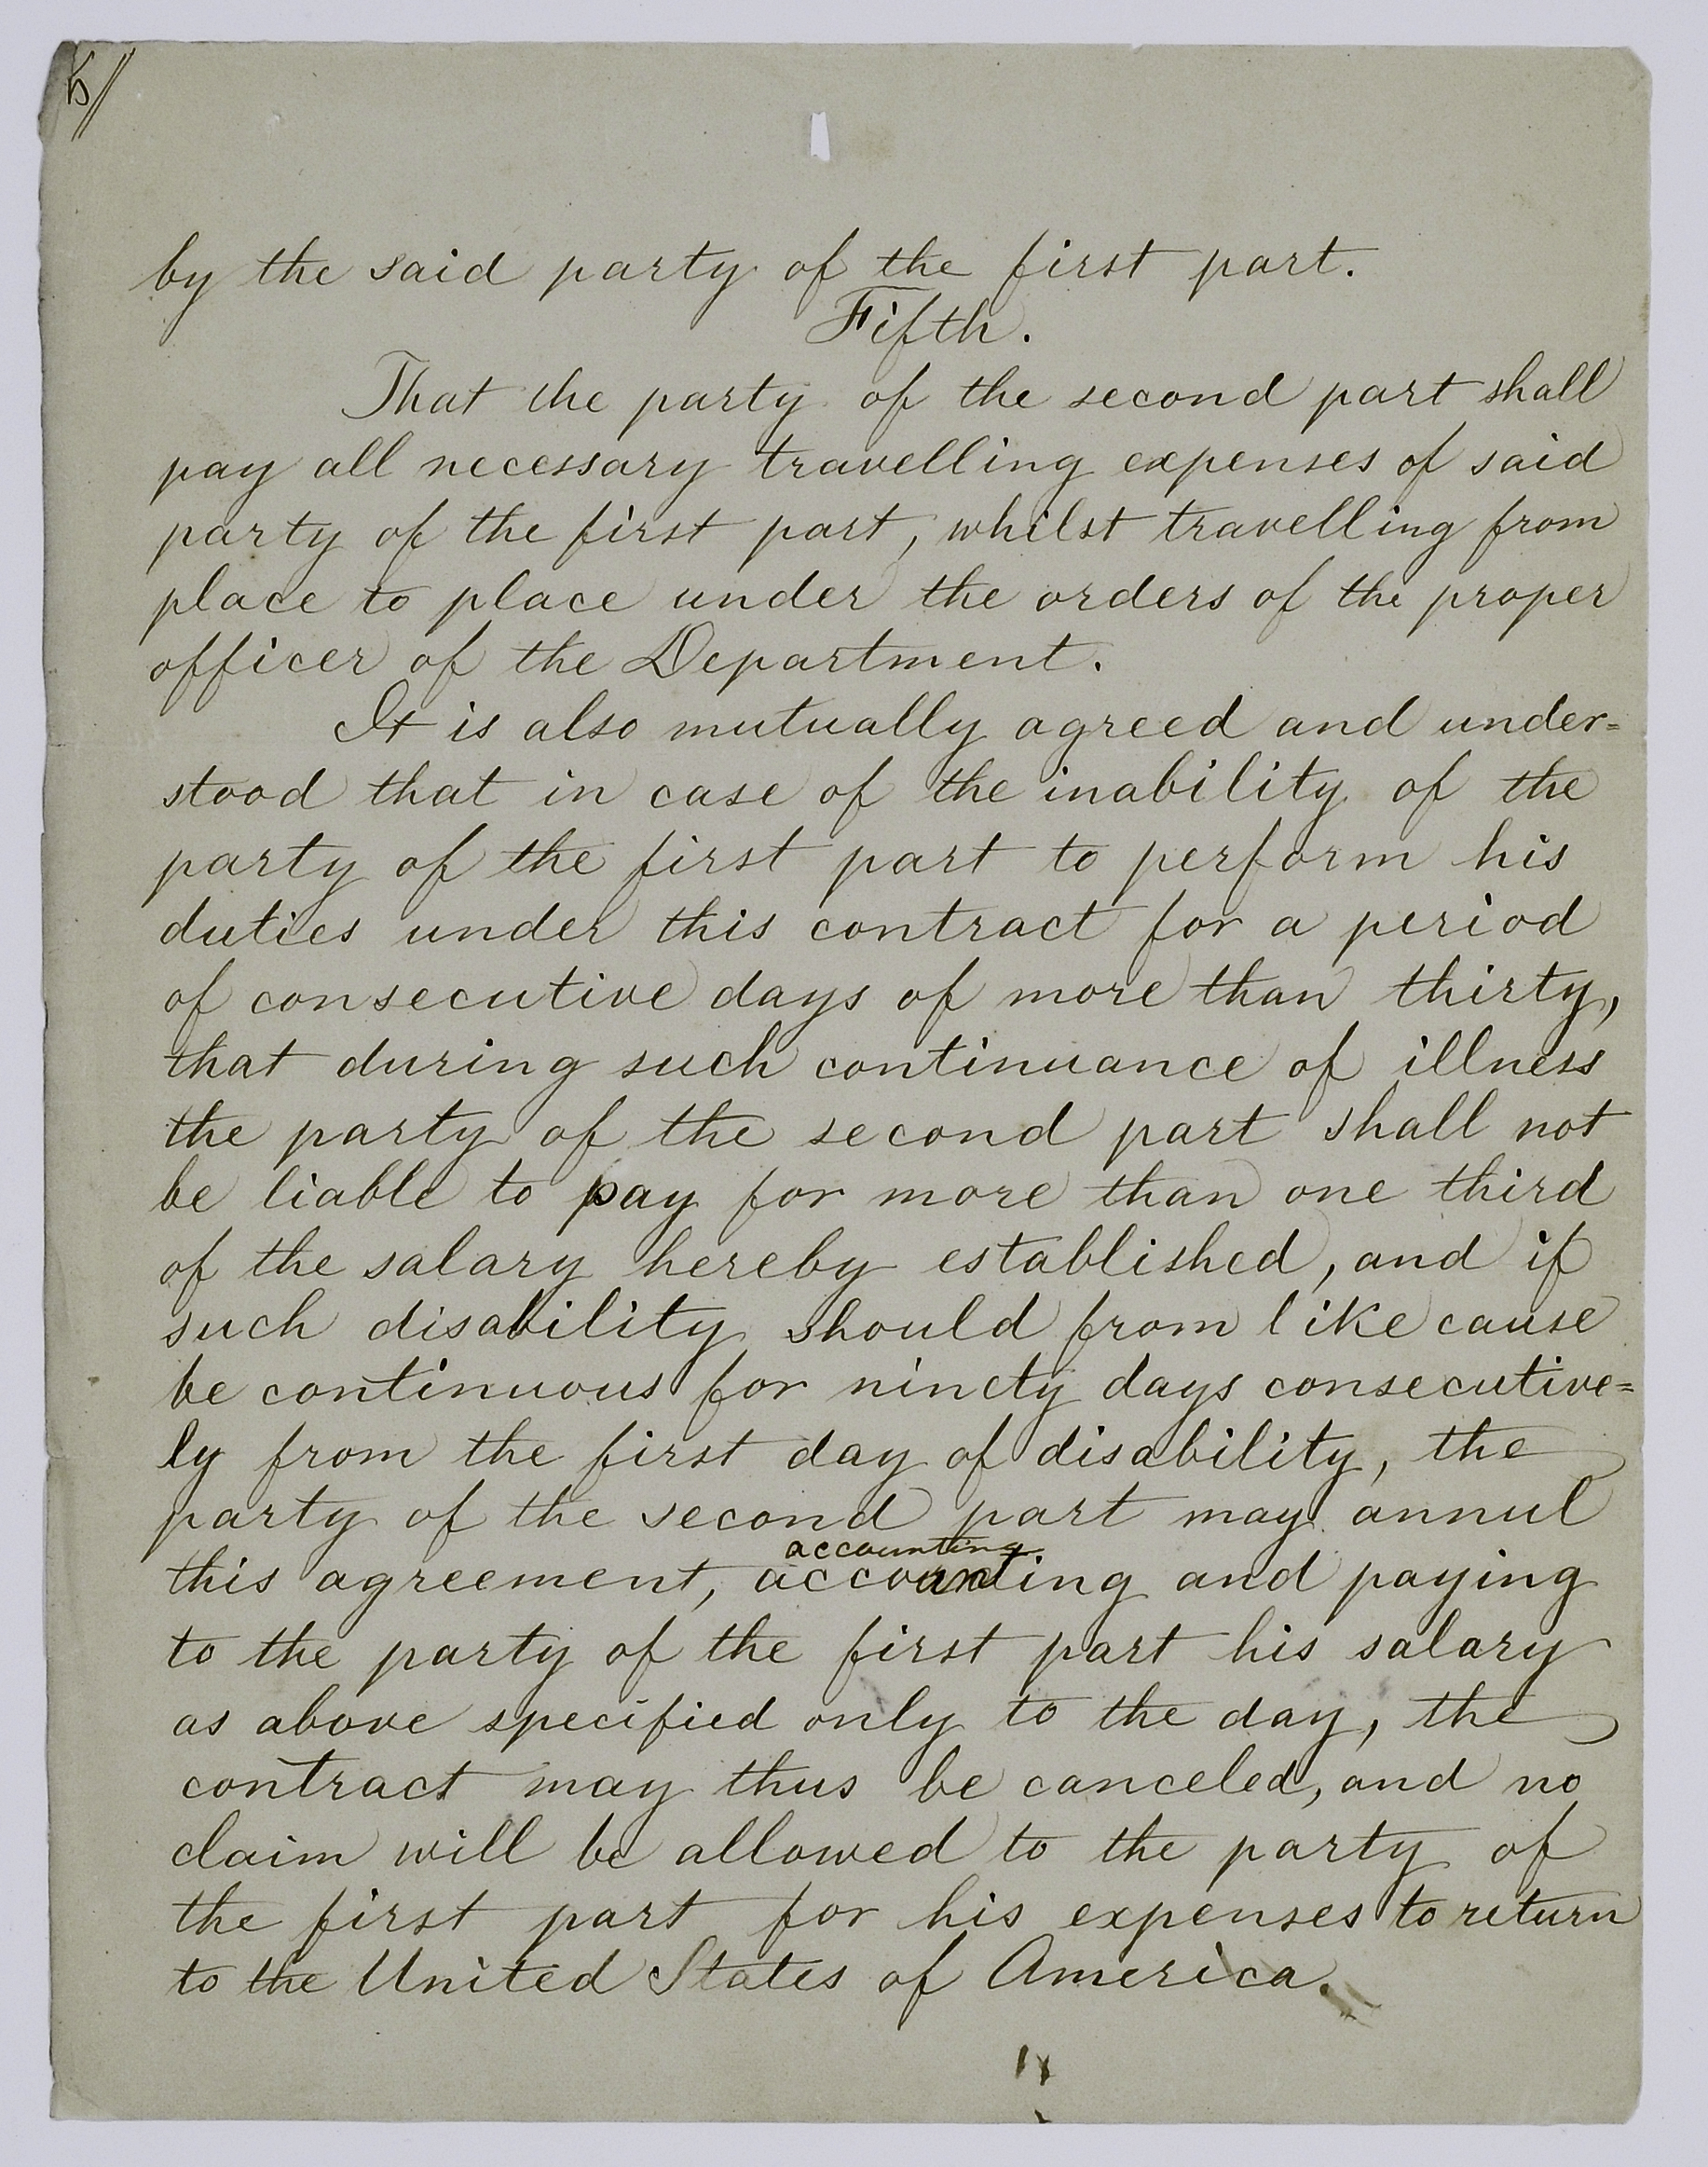 5//
by the said party of the first part.
Fifth.
That the party of the second part shall
pay all necessary travelling expenses of said
party of the first part, whilst travelling from
place to place under the orders of the proper
officer of the Department.
It is also mutually agreed and under=
stood that in case of the inability of the
party of the first part to perform his
duties under this contract for a period
of consecutive days of more than thirty,
that during such continuance of illness
the party of the second part shall not
be liable to pay for more than one third
of the salary hereby established, and if
such disability should from like cause
be continuous for ninety days consecutive=
ly from the first day of disability, the
party of the second part may annul
accounting
this agreement, accounting and paying
to the party of the first part his salary
as above specified only to the day, the
contract may thus be canceled, and no
claim will be allowed to the party of
the first part for his expenses to return
to the United States of America.